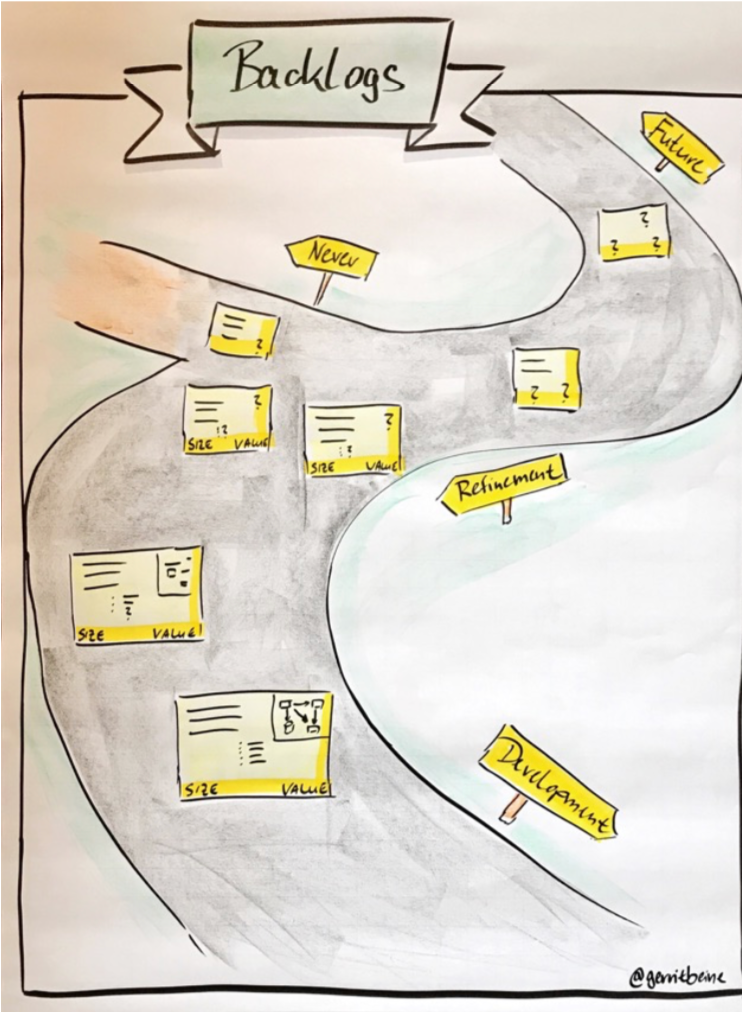 Backlogs
Future
?
? ?
Never
?
? ?
?
?
?
SIZE VALUE
?
?
SIZE VALUE
Refinement
?
SIZE VALUE
SIZE VALUE
Development
@gerritbeine